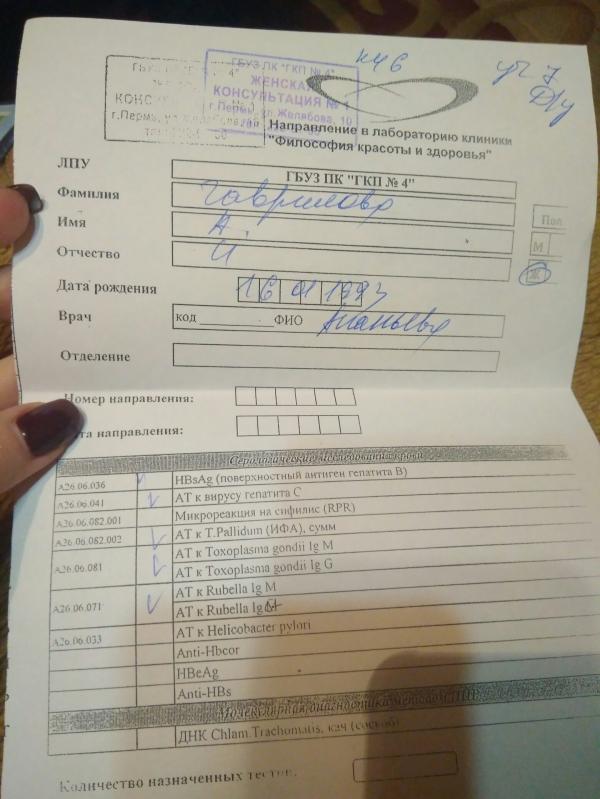 ГБУЗ ПК "ГКП № 4"
ЖЕНСКАЯ
КОНСУЛЬТАЦИЯ № 1
г.Пермь, ул. Желябова, 10
уч 7
Д/у
Направление в лабораторию клиники
"Философия красоты и здоровья"
ЛПУ ГБУЗ ПК "ГКП № 4"
Фамилия Гаврилова
Имя А.
Отчество И
Пол
М
Ж
Дата рождения 16 01 1993
Врач код ФИО Ананьева
Отделение
Номер направления:
Дата направления:
Серологические исследования крови
A26.06.036 HBsAg (поверхностный антиген гепатита В)
A26.06.041 АТ к вирусу гепатита С
A26.06.082.001 Микрореакция на сифилис (RPR)
A26.06.082.002 АТ к T.Pallidum (ИФА), сумм
A26.06.081 АТ к Toxoplasma gondii Ig M
АТ к Toxoplasma gondii Ig G
A26.06.071 АТ к Rubella Ig M
АТ к Rubella Ig G
A26.06.033 АТ к Helicobacter pylori
Anti-Hbcor
HBeAg
Anti-HBs
Молекулярная диагностика методом ПЦР
ДНК Chlam.Trachomatis, кач (соскоб)
Количество назначенных тестов: